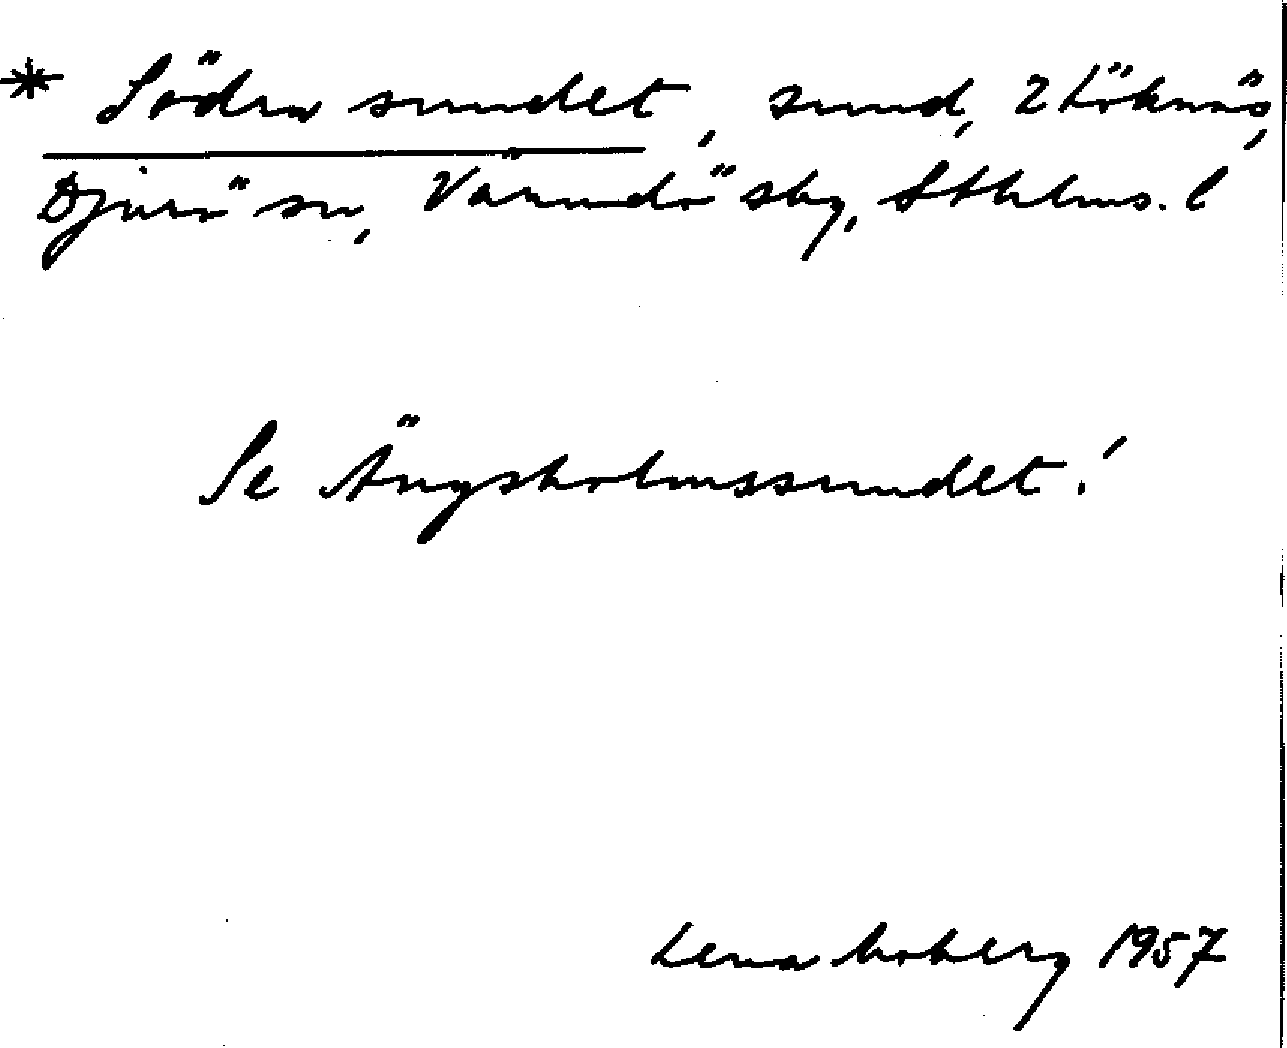 * Södra sundet, sund, 2 Löknäs,
Djurö sn, Värmdö skg, Sthlms. l
Se Ängsholmssundet!
Lena Moberg 1957